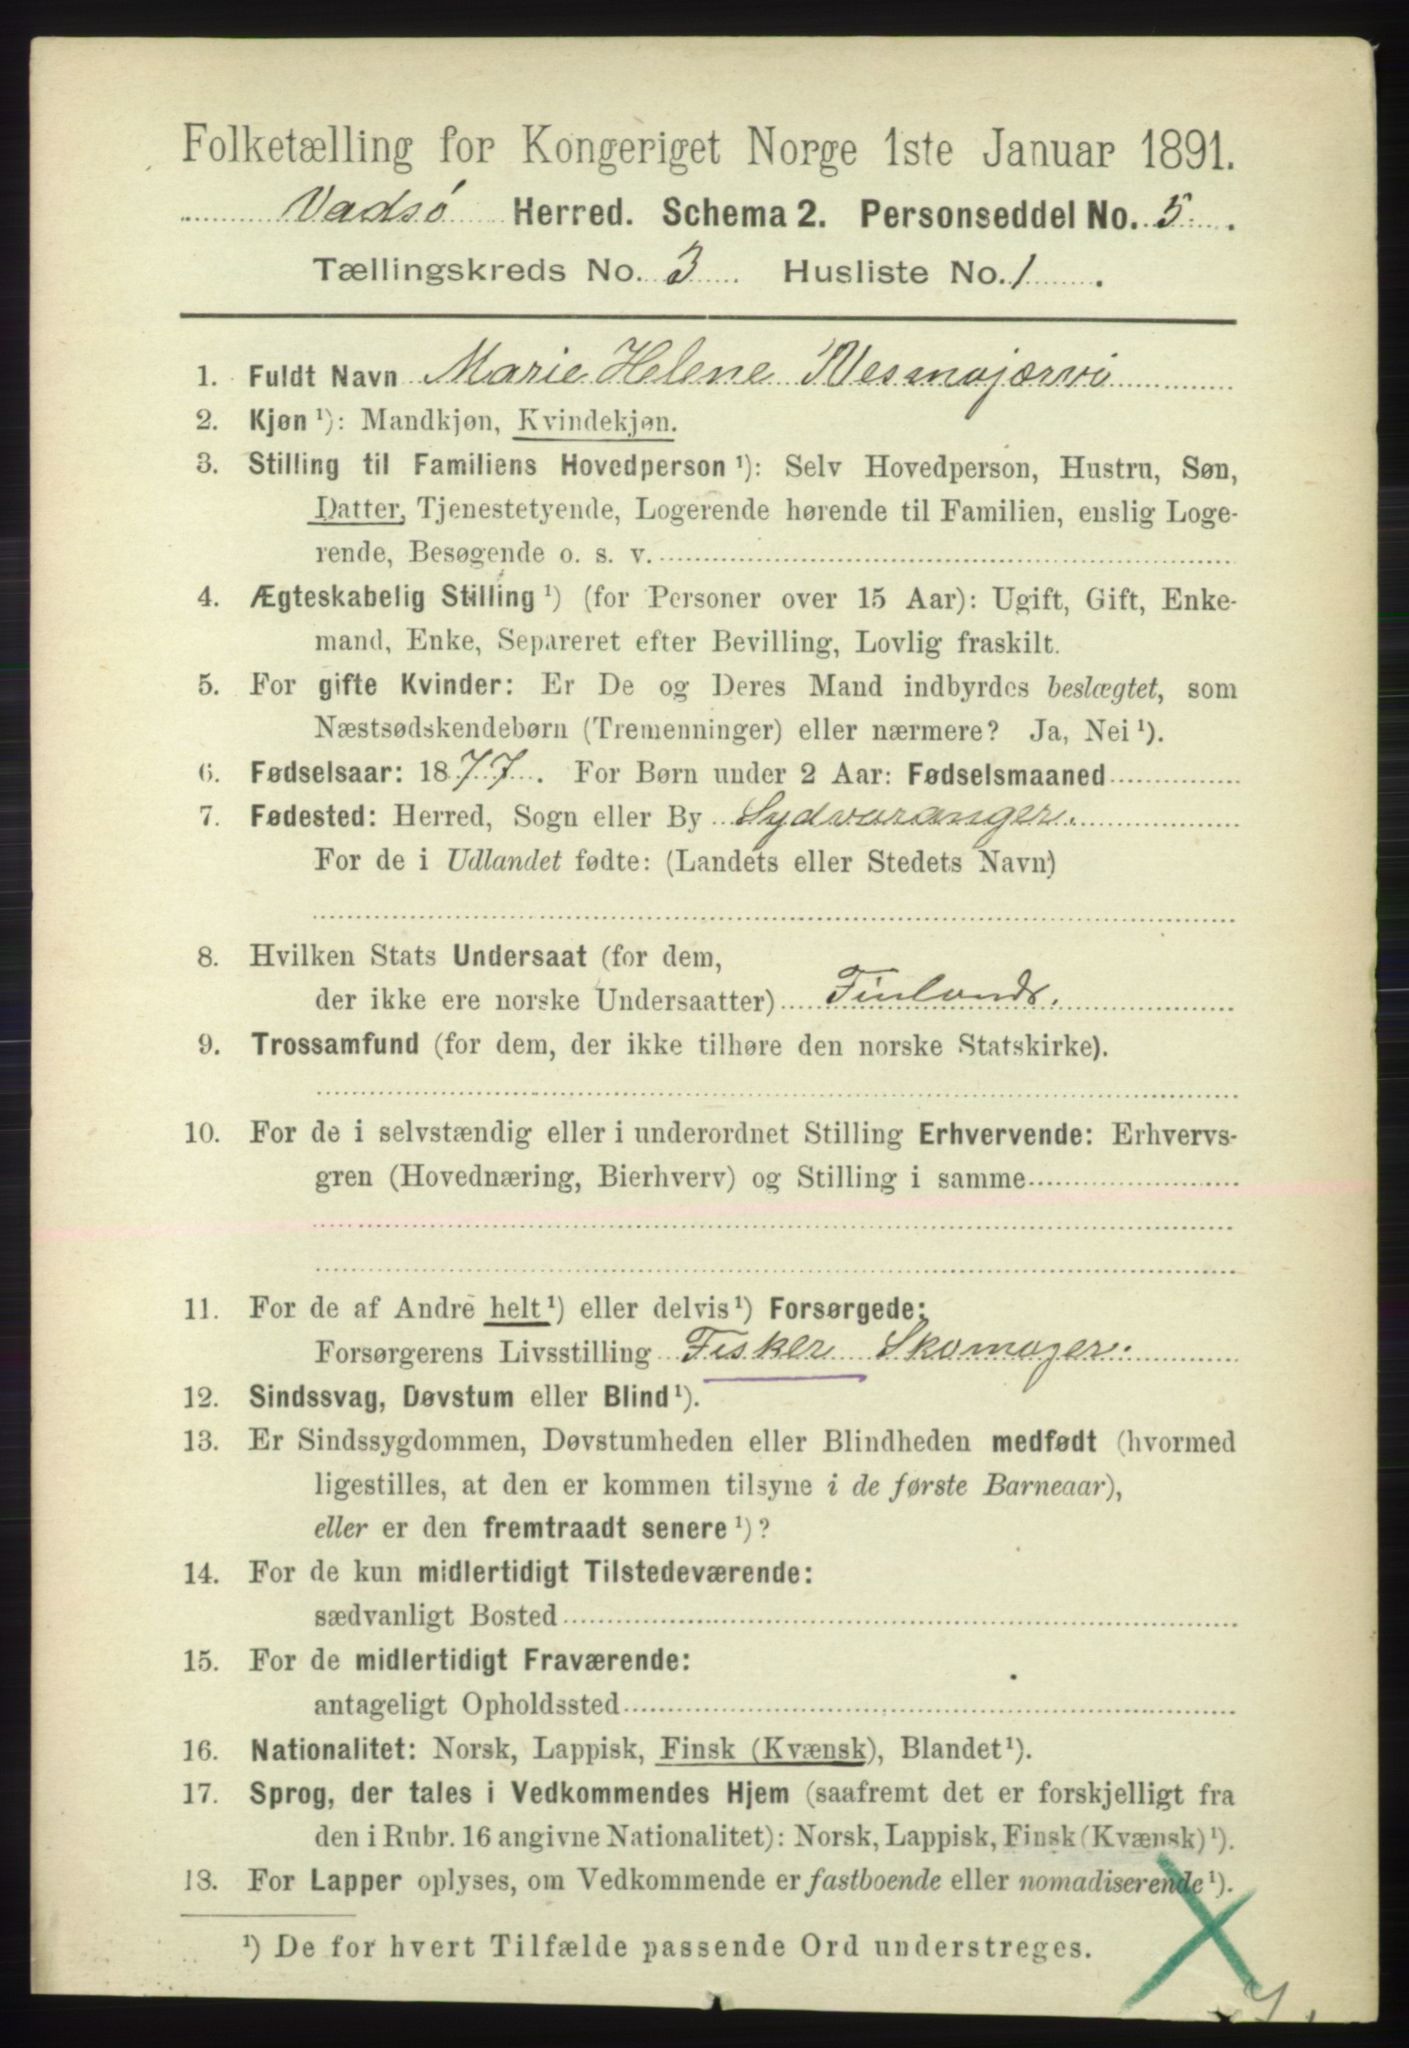 Folketælling for Kongeriget Norge 1ste Januar 1891.
Vadsö Herred. Schema 2. Personseddel No. 5.
Tællingskreds No. 3 Husliste No. 1.
1. Fuldt Navn Marie Helene Vesmajærvi
2. Kjøn ¹): Mandkjøn, Kvindekjøn.
3. Stilling til Familiens Hovedperson ¹): Selv Hovedperson, Hustru, Søn,
Datter, Tjenestetyende, Logerende hørende til Familien, enslig Loge-
rende, Besøgende o. s. v.
4. Ægteskabelig Stilling ¹) (for Personer over 15 Aar): Ugift, Gift, Enke-
mand, Enke, Separeret efter Bevilling, Lovlig fraskilt.
5. For gifte Kvinder: Er De og Deres Mand indbyrdes beslægtet, som
Næstsødskendebørn (Tremenninger) eller nærmere? Ja, Nei ¹).
6. Fødselsaar: 1877. For Børn under 2 Aar: Fødselsmaaned
7. Fødested: Herred, Sogn eller By Sydvaranger.
For de i Udlandet fødte: (Landets eller Stedets Navn)
8. Hvilken Stats Undersaat (for dem,
der ikke ere norske Undersaatter) Finlands.
9. Trossamfund (for dem, der ikke tilhøre den norske Statskirke).
10. For de i selvstændig eller i underordnet Stilling Erhvervende: Erhvervs-
gren (Hovednæring, Bierhverv) og Stilling i samme
11. For de af Andre helt ¹) eller delvis ¹) Forsørgede:
Forsørgerens Livsstilling Fisker Skomager.
12. Sindssvag, Døvstum eller Blind ¹).
13. Er Sindssygdommen, Døvstumheden eller Blindheden medfødt (hvormed
ligestilles, at den er kommen tilsyne i de første Barneaar),
eller er den fremtraadt senere ¹)?
14. For de kun midlertidigt Tilstedeværende:
sædvanligt Bosted
15. For de midlertidigt Fraværende:
antageligt Opholdssted
16. Nationalitet: Norsk, Lappisk, Finsk (Kvænsk), Blandet ¹).
17. Sprog, der tales i Vedkommendes Hjem (saafremt det er forskjelligt fra
den i Rubr. 16 angivne Nationalitet): Norsk, Lappisk, Finsk (Kvænsk) ¹).
18. For Lapper oplyses, om Vedkommende er fastboende eller nomadiserende ¹).
¹) De for hvert Tilfælde passende Ord understreges.